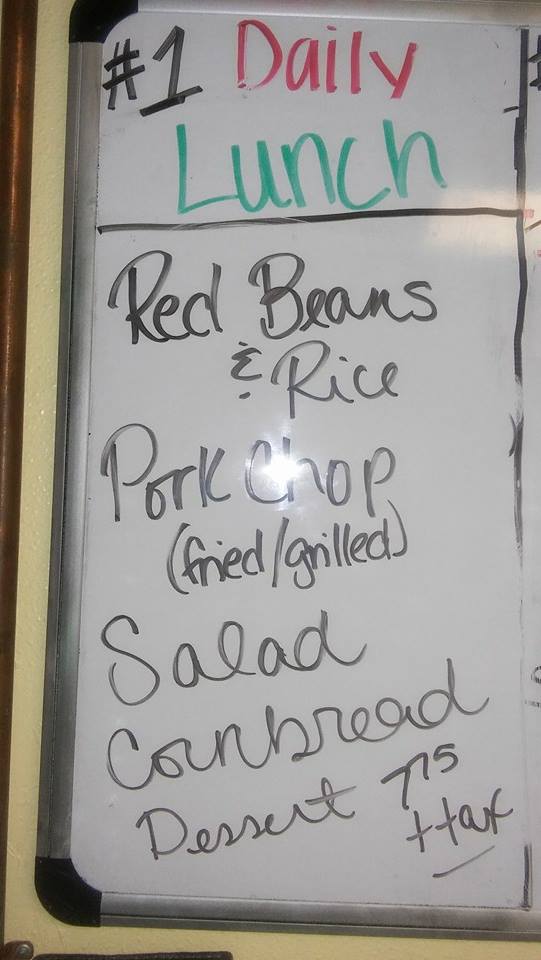 #1 Daily
Lunch
Red Beans
& Rice
Pork Chop
(fried/grilled)
Salad
Cornbread
Dessert 7.75
+ tax